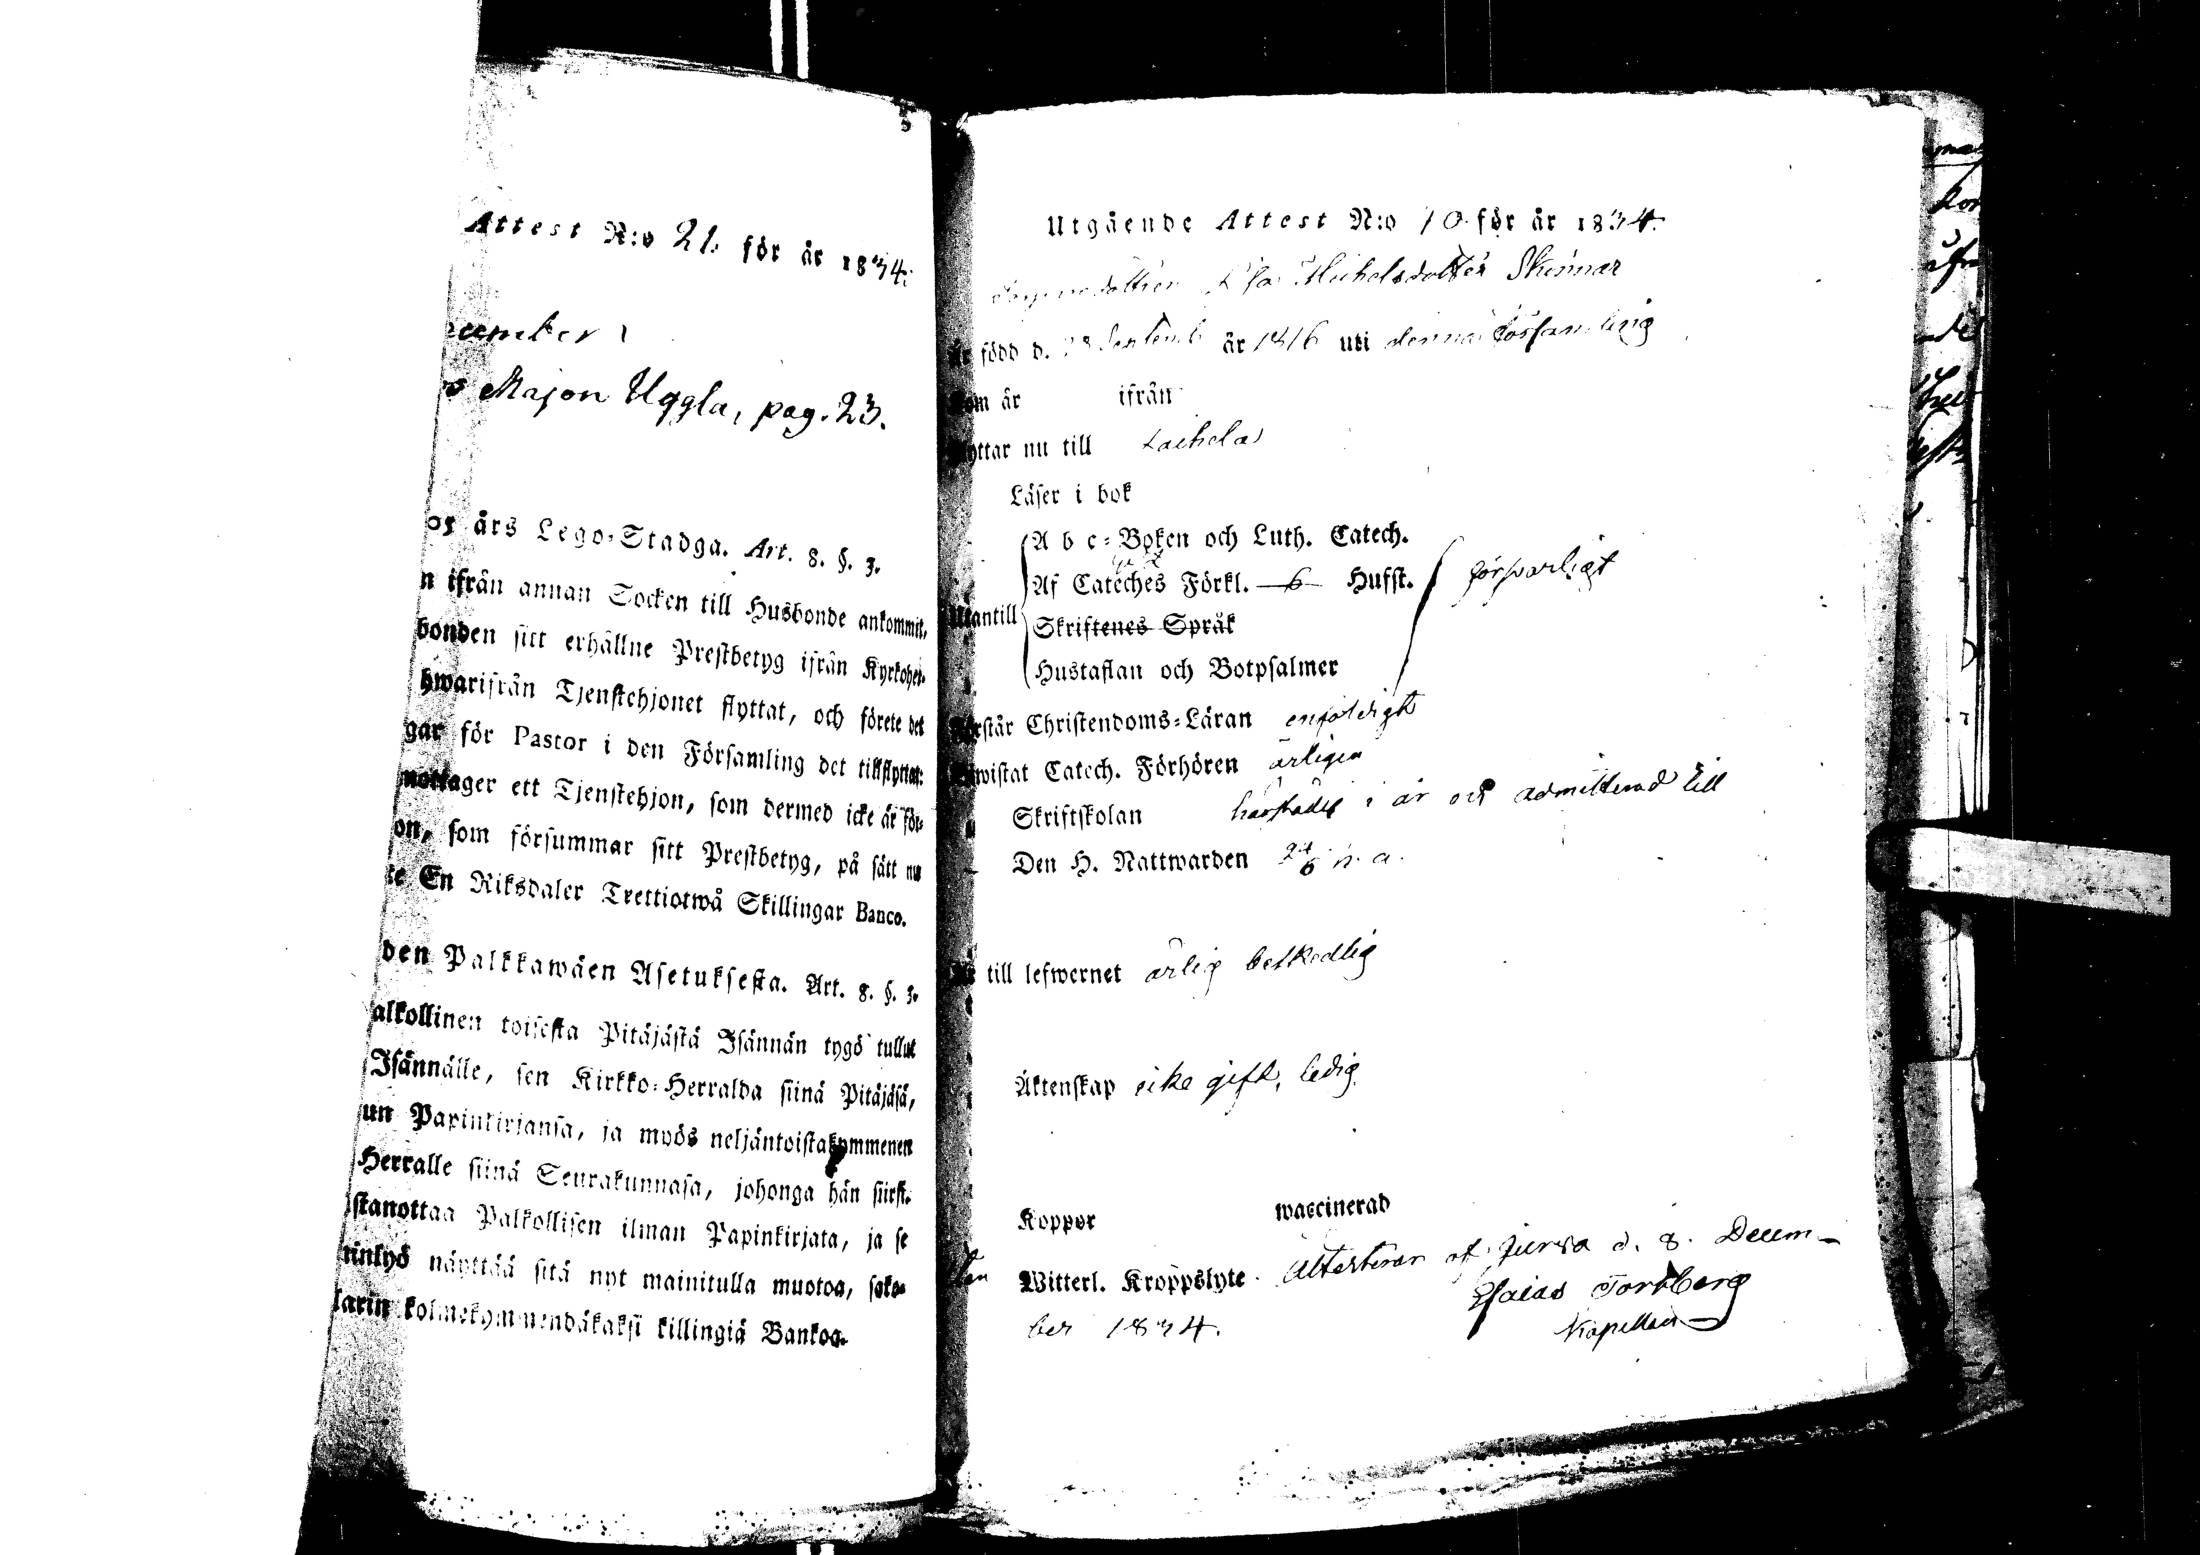 Attest N:o 21. för år 1834.
ecember
Major Uggla, pag. 23.
års Lego-Stadga. Art. 8. §. 3.
n ifrån annan Socken till Husbonde ankommit,
bonden sitt erhållne Prestbetyg ifrån Kyrkoher-
hwarifrån Tjenstehjonet flyttat, och förete det
gar för Pastor i den Församling det tillflyttat:
mottager ett Tjenstehjon, som dermed icke är för-
on, som försummar sitt Prestbetyg, på sätt nu
te En Riksdaler Trettiotwå Skillingar Banco.
den Palkkawäen Asetuksesta. Art. 8. §. 3.
alkollinen toisesta Pitäjästä Isännän tygö tullut
Isännälle, sen Kirkko-Herralda siinä Pitäjäsä,
un Papinkirjansa, ja myös neljäntoistakymmenen
Herralle siinä Seurakunnasa, johonga hän siirst-
istanottaa Palkollisen ilman Papinkirjata, ja se
rinkyö näyttää sitä nyt mainitulla muotoa, sako-
larin kolmekymmendäkaksi killingiä Bankoa.
Utgående Attest N:o 10. för år 1834.
Michelsdotter Skinnar
Är född d. 28 Septemb år 1816 uti denna församling
Kom år ifrån
flyttar nu till Laihela
Läser i bok
A b c-Boken och Luth. Catech.
Af Cateches Förkl. 6 Hufst. försvarligt
Utantill
Skriftenes Språk
Hustaflan och Botpsalmer
Förstår Christendoms-Läran enfoldigt
Biwistat Catech. Förhören årligen
Skriftskolan härstädes i år och admitterad till
Den H. Nattwarden 24/6 n. a.
Är till lefwernet ärlig beskedlig
Äktenskap icke gift, ledig
Koppor waccinerad
Witterl. Kroppslyte Attesterar af Jurva d. 8. Decem-
ber 1834. Esaias Forsberg
Kapellan